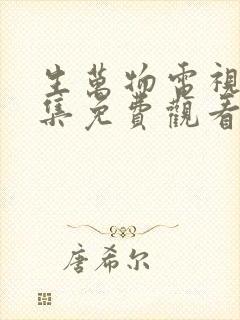 生萬物電視
集免費觀看
唐希尔